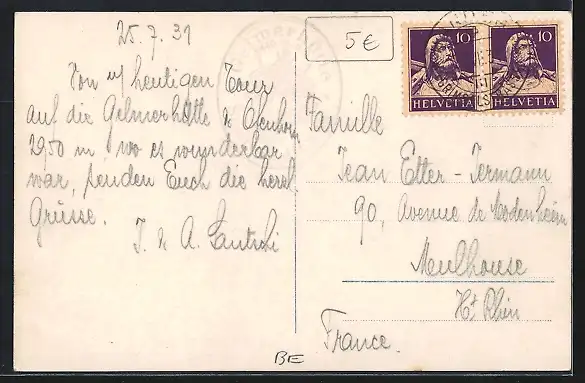 25.7.31
5€
Von uns. heutigen Tour
auf die Gelmerhütte &
2950 m wo es wunderbar
war, senden Euch die herzl
Grüsse.
J. & A. Lautschi
10
10
HELVETIA
HELVETIA
Famille
Jean Etter - Jermann
90, Avenue de Modenheim
Mulhouse
Ht Rhin
France.
BE